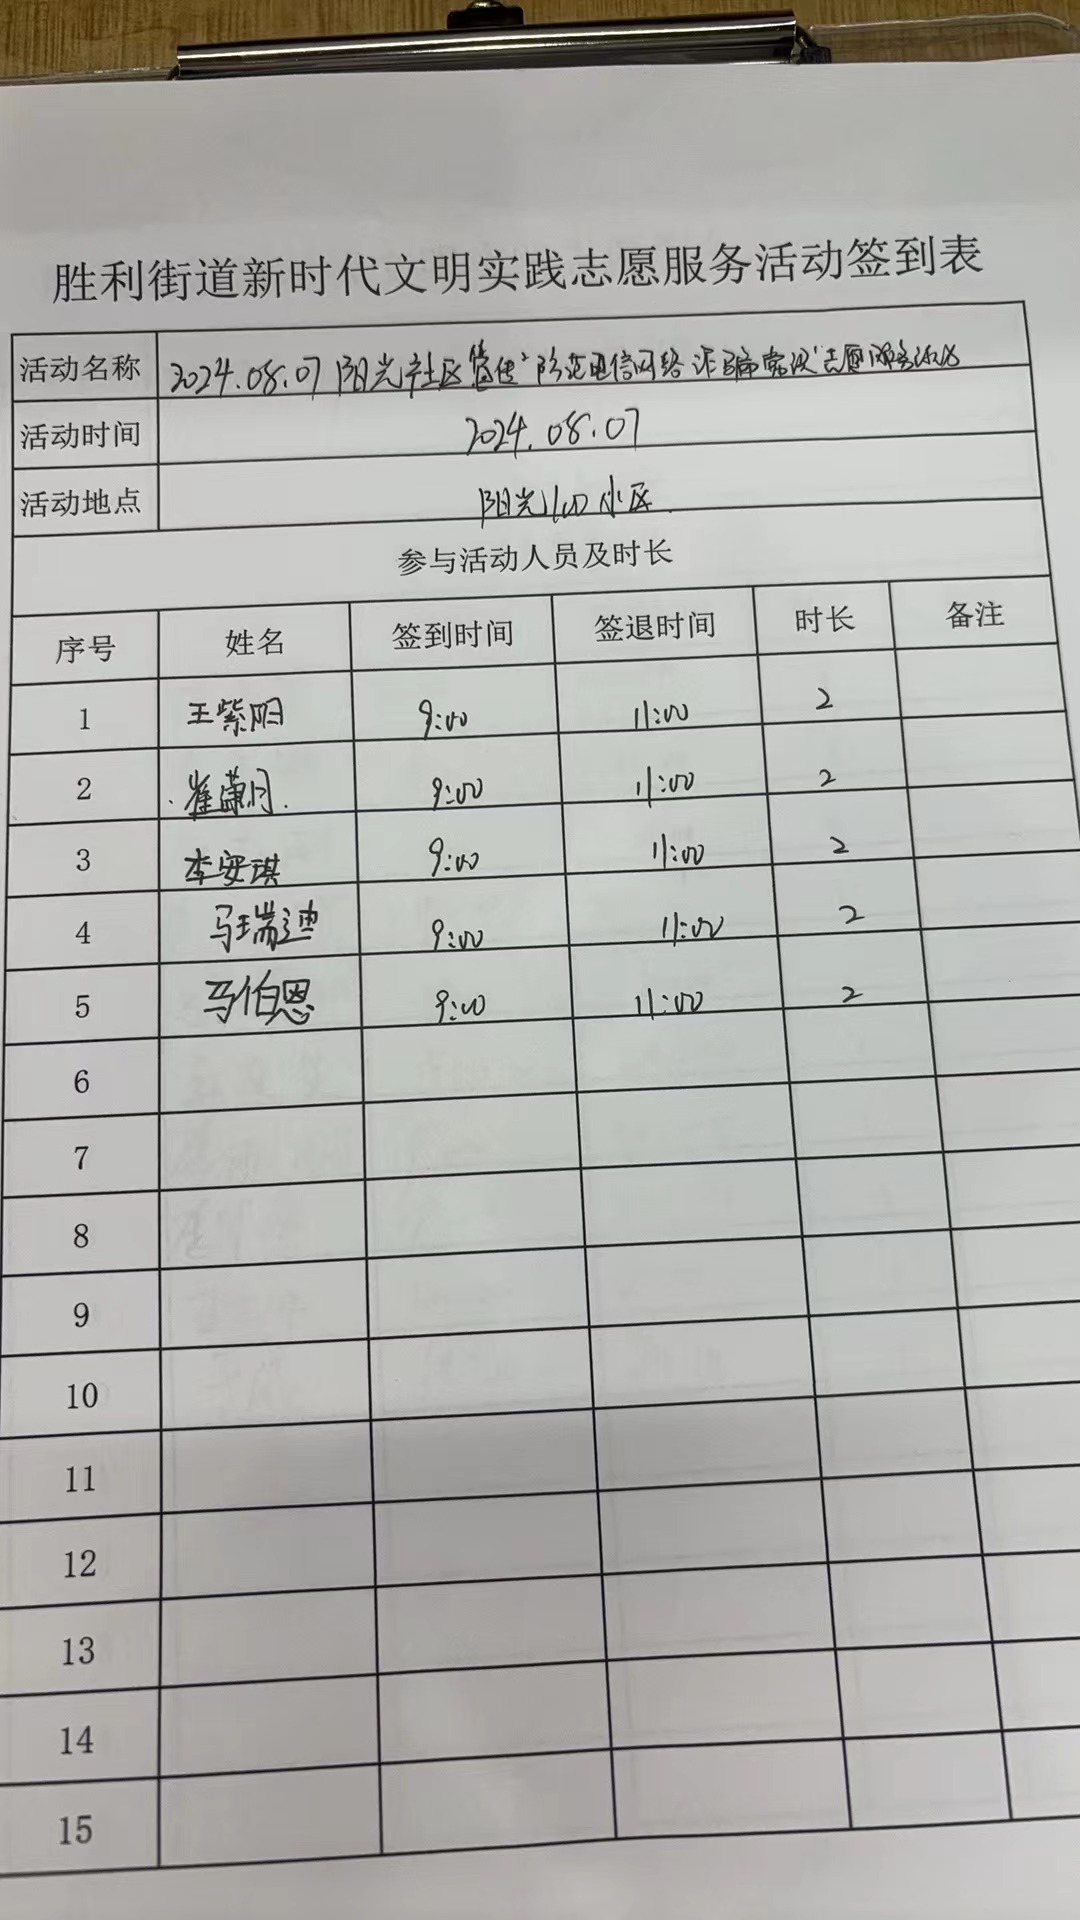 胜利街道新时代文明实践志愿服务活动签到表
活动名称 2024.08.07 阳光社区宣传"防范电信网络诈骗常识"志愿服务活动
活动时间 2024.08.07
活动地点 阳光100小区
参与活动人员及时长
序号 姓名 签到时间 签退时间 时长 备注
1 王紫阳 9:00 11:00 2
2 崔潇月 9:00 11:00 2
3 李安琪 9:00 11:00 2
4 马瑞迪 9:00 11:00 2
5 马伯恩 9:00 11:00 2
6
7
8
9
10
11
12
13
14
15